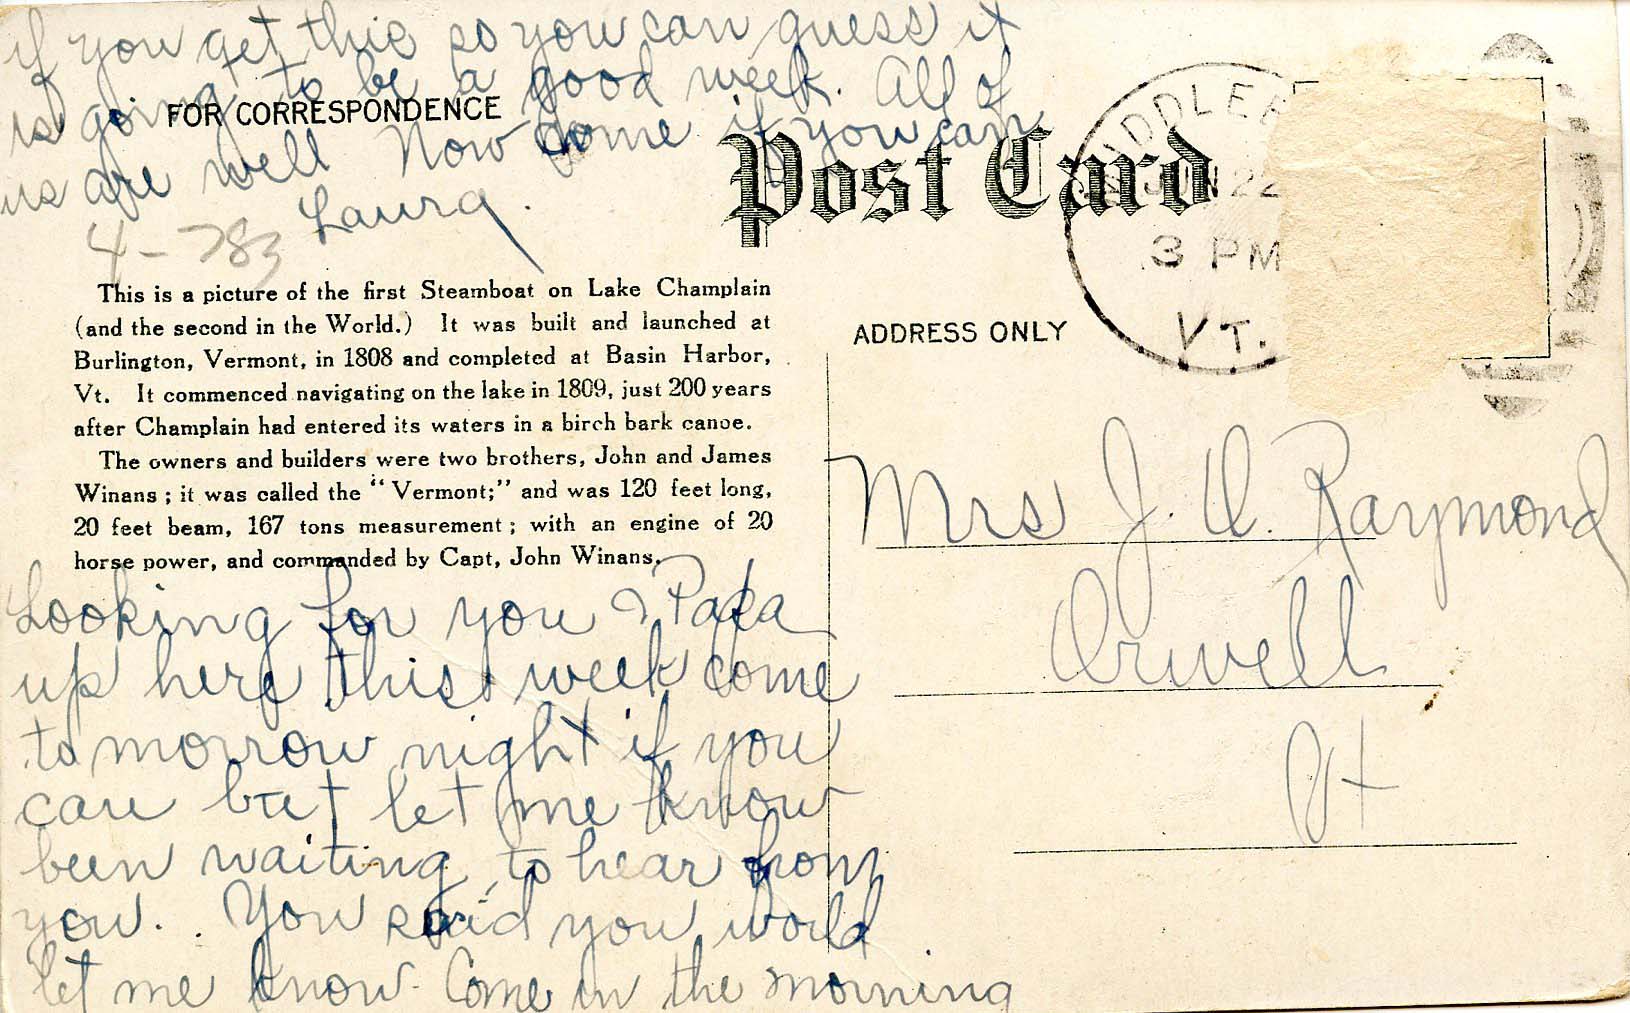 if you get this so you can guess it
is going to be a good week. All of
us are well Now come if you can
Laura.
4-783
FOR CORRESPONDENCE
Post Card
JUN 22
3 PM
VT.
This is a picture of the first Steamboat on Lake Champlain
(and the second in the World.) It was built and launched at
Burlington, Vermont, in 1808 and completed at Basin Harbor,
Vt. It commenced navigating on the lake in 1809, just 200 years
after Champlain had entered its waters in a birch bark canoe.
The owners and builders were two brothers, John and James
Winans; it was called the "Vermont;" and was 120 feet long,
20 feet beam, 167 tons measurement; with an engine of 20
horse power, and commanded by Capt, John Winans.
Looking for you & Papa
up here this week come
to morrow night if you
can but let me know
been waiting to hear from
you. You said you would
let me know. Come in the morning
ADDRESS ONLY
Mrs J. O. Raymond
Orwell
Vt